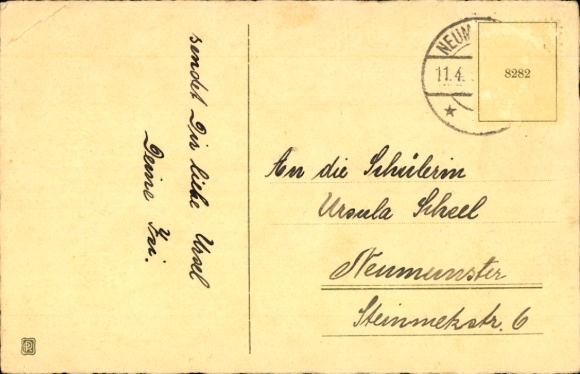 sendet Dir liebe Ursel
Deine Fri.
NEUM
11.4.
8282
An die Schülerin
Ursula Scheel
Neumünster
Steinmetzstr. 6